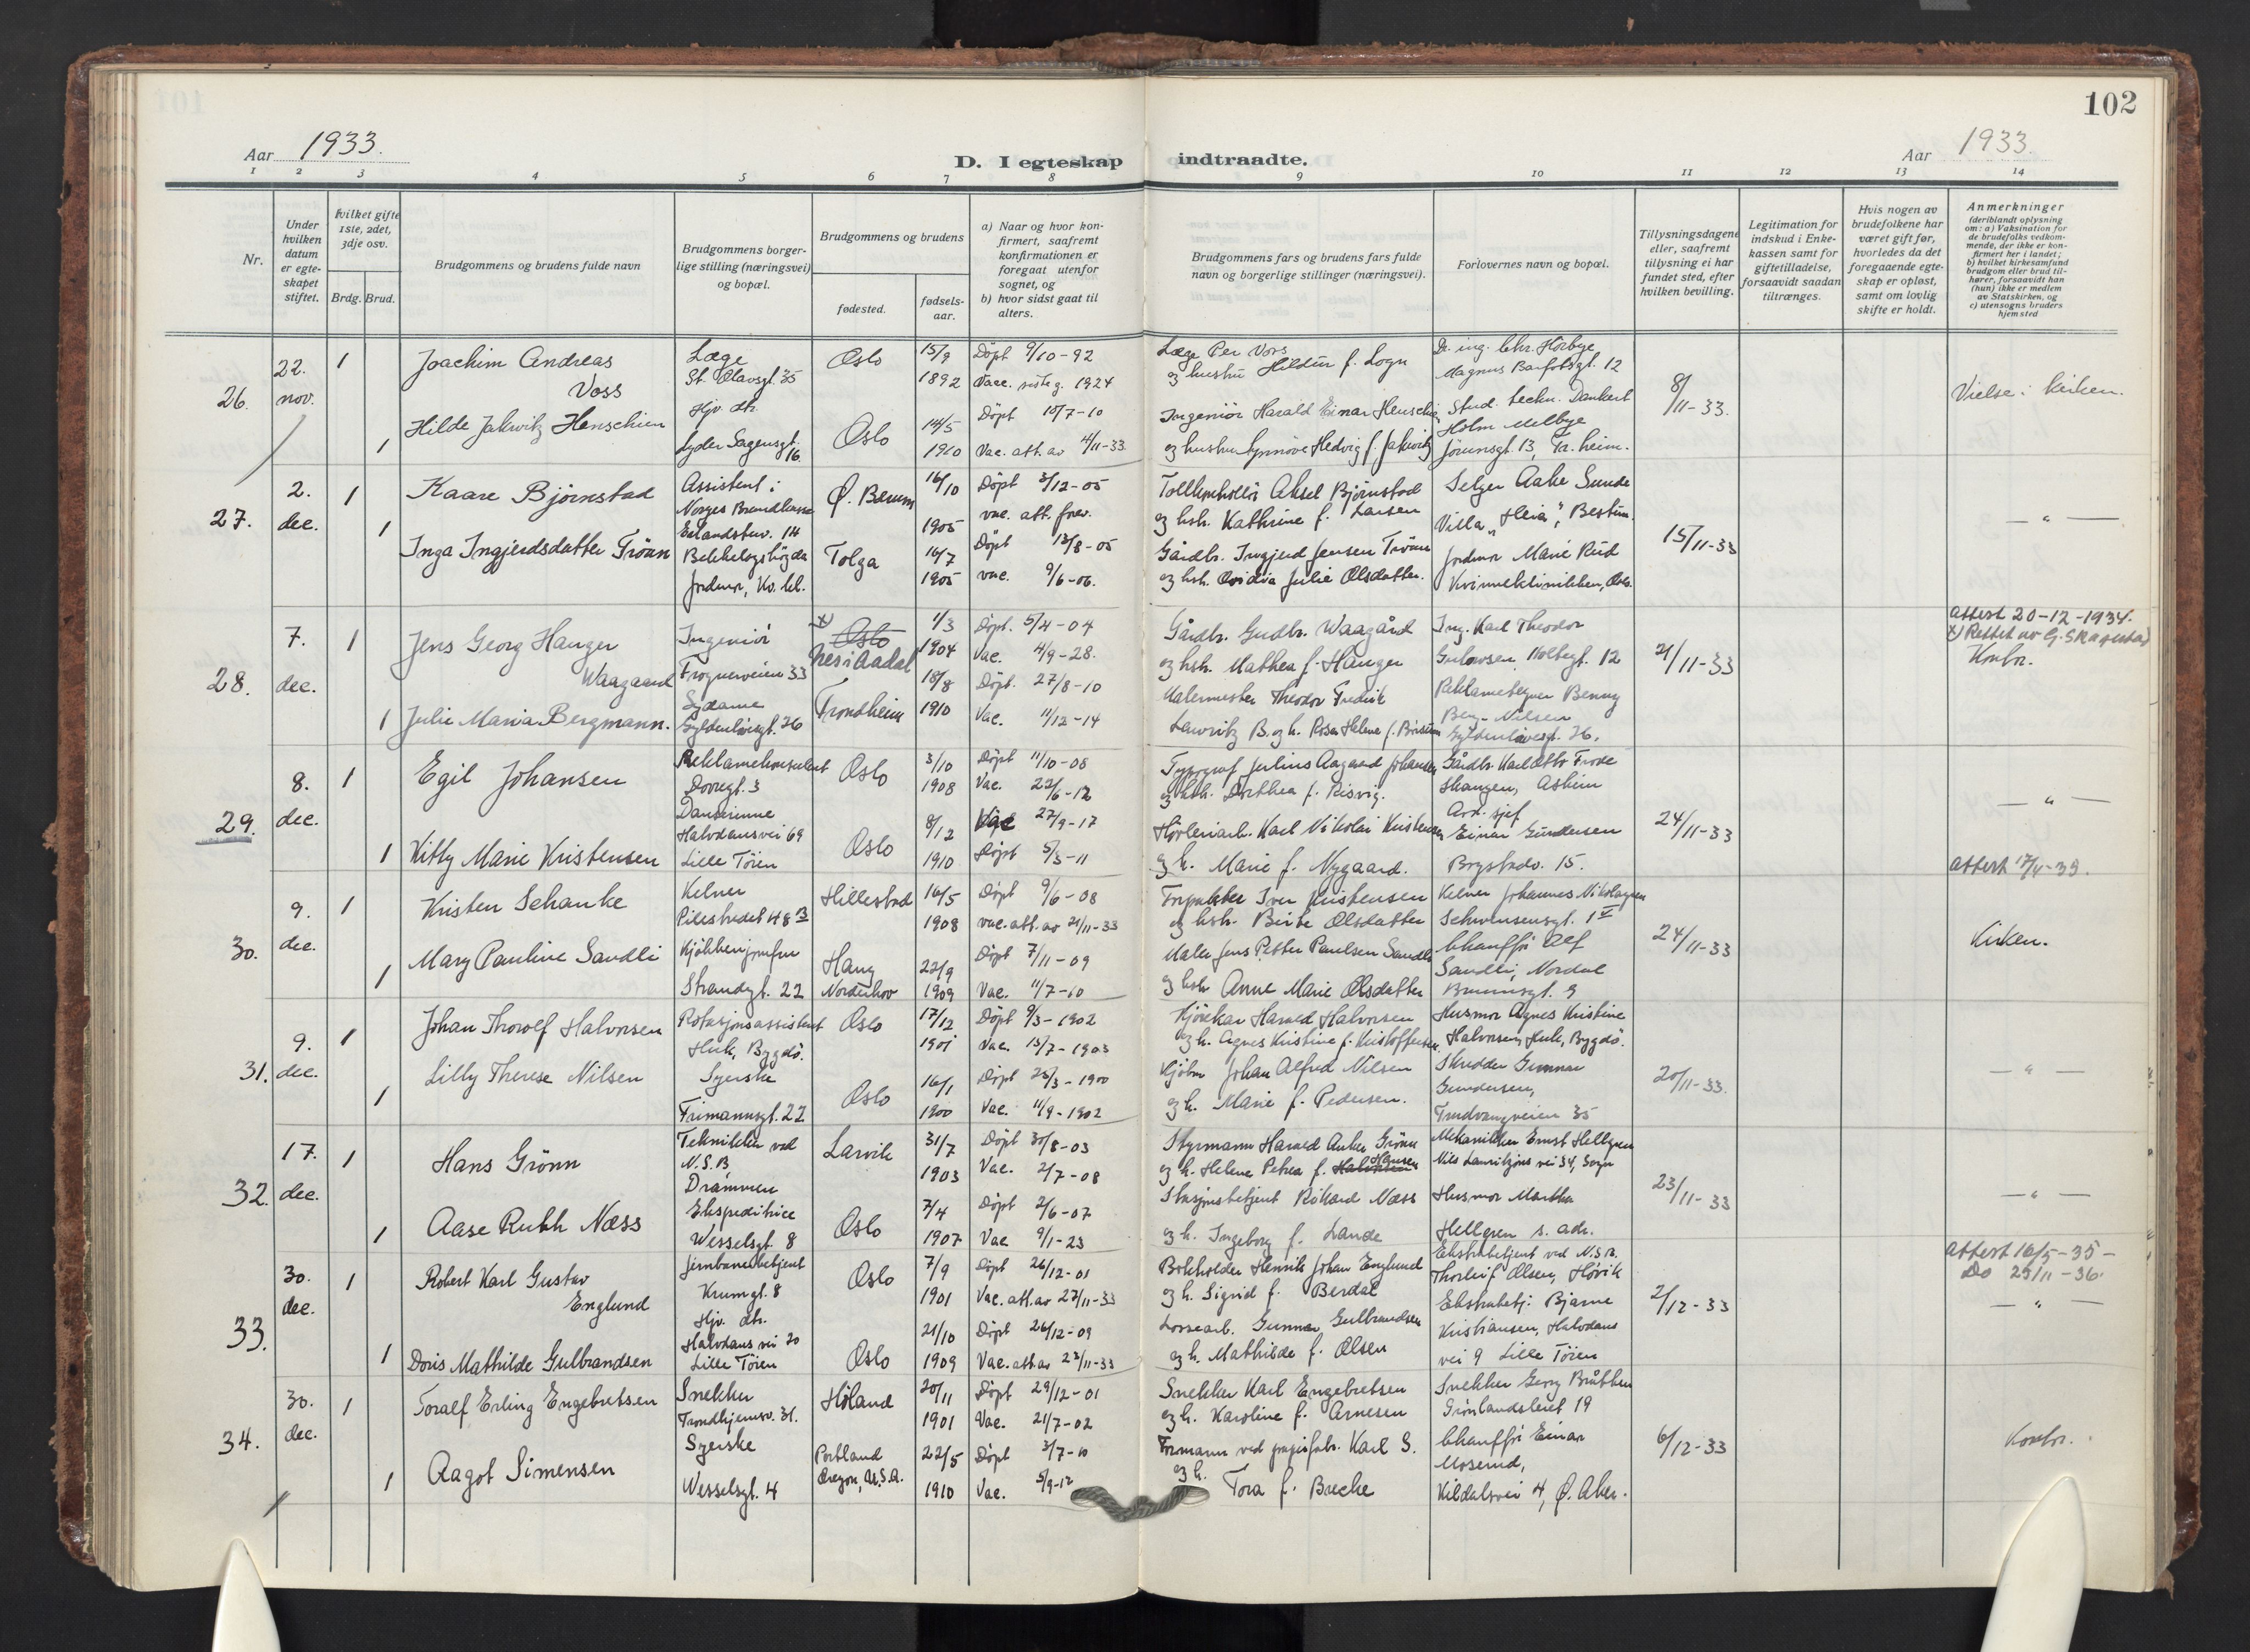 102
Aar 1933.
D. I egteskap indtraadte.
Aar 1933.
1 2 3 4 5 6 7 8 9 10 11 12 13 14
Nr.
Under hvilken datum er egteskapet stiftet.
hvilket gifte 1ste, 2det, 3dje osv.
Brdg. Brud.
Brudgommens og brudens fulde navn
Brudgommens borgerlige stilling (næringsvei) og bopæl.
Brudgommens og brudens
fødested.
fødselsaar.
a) Naar og hvor konfirmert, saafremt konfirmationen er foregaat utenfor sognet, og
b) hvor sidst gaat til alters.
Brudgommens fars og brudens fars fulde navn og borgerlige stillinger (næringsvei).
Forlovernes navn og bopæl.
Tillysningsdagene eller, saafremt tillysning ei har fundet sted, efter hvilken bevilling.
Legitimation for indskud i Enkekassen samt for giftetilladelse, forsaavidt saadan tiltrænges.
Hvis nogen av brudefolkene har været gift før, hvorledes da det foregaaende egteskap er opløst, samt om lovlig skifte er holdt.
Anmerkninger
(deriblandt oplysning om: a) Vaksination for de brudefolks vedkommende, der ikke er konfirmert her i landet; b) hvilket kirkesamfund brudgom eller brud tilhører, forsaavidt han (hun) ikke er medlem av Statskirken, og c) utensogns bruders hjemsted
26.
22. nov.
1
Joachim Andreas
Voss
Læge
St. Olavsgt. 35
Oslo
15/9
1892
Døpt 9/10-92
Vacc. siste g. 1924
Læge Per Voss
og hustru Hildur f. Logn
Dr. ing. Chr. Hørbye
Magnus Barfotsgt. 12
8/11-33.
Vielse i kirken.
1
Hilde Jakwitz Henschien
Hjv. dtr.
Lyder Sagensgt. 16.
Oslo
14/5
1910
Døpt 10/7-10
Vac. att. av 4/11-33
Ingeniør Harald Einar Henschien
og hustru Synnøve Hedvig f. Jakwitz
Stud. techn. Dankert
Holm Melbye
Jørunsgt. 13, Tr.heim.
27.
2. dec.
1
Kaare Bjørnstad
Assistent i
Norges Brandkasse
Ekelandsv. 14
Bekkelagshøgda
Ø. Bærum
16/10
1905
Døpt 3/12-05
vac. att. frev.
Tollkontrollør Aksel Bjørnstad
og hsh. Kathrine f. Larsen
Selger Aake Sunde
Villa "Heia", Bestum.
15/11-33
— " —
1
Inga Ingjerdsdatter Trøan
Jordmor, Kv. kl.
Tolga
16/7
1905
Døpt 13/8-05
vac. 9/6-06.
Gårdbr. Ingjerd Jensen Trøan
og hsh. Ovidia Julie Olsdatter.
Jordmor Marie Rud
Kvinneklinikken, Oslo.
28.
7. dec.
1
Jens Georg Hanger
Waagaard
Ingeniør
Frognerveien 33
x) Oslo
Nes i Aadal
1/3
1904
Døpt. 5/4-04
Vac. 4/9-28.
Gårdbr. Gudbr. Waagård
og hsh. Mathea f. Hanger
Ing. Karl Theodor
Gulowsen, Holtegt. 12
21/11-33
attest 20-12-1934.
x) Rettet av G. Skagestad
Kontor.
1
Julie Maria Bergmann.
Sydame
Gyldenløvesgt. 26
Trondheim
18/8
1910
Døpt. 27/8-10
Vac. 11/12-14
Malermester Theodor Fredrik
Lauritz B. og h. Rosa Helene f.
Reklametegner Benny
Berg-Nilsen
Gyldenløvesgt. 26.
29.
8. dec.
1
Egil Johansen
Reklamekonsulent
Dovregt. 3
Oslo
3/10
1908
Døpt 11/10-08
Vac. 22/6-12
Typograf Julius Aagaard Johansen
og hsh. Dorthea f. Risvig.
Gårdbr. Karl Otto Frode
Skangen, Askim
24/11-33
— " —
1
Kitty Marie Kristensen
Danserinne
Halvdansvei 69
Lille Tøien
Oslo
8/12
1910
Vac 27/9-17
Døpt 5/3-11
Høvleriarb. Karl Nikolai Kristensen
og h. Marie f. Nygaard.
Avd. sjef
Einar Gundersen
Brystadv. 15.
30.
9. dec.
1
Kristen Schanke
Kelner
Pilestredet 48 B
Hillestad
16/5
1908
Døpt 9/6-08
vac. att. av 21/11-33
Forpakter Iver Kristensen
og hsh. Berte Olsdatter
Kelner Johannes Nikolaysen
Schwensensgt. 1 V
24/11-33
attest 17/4-39.
Kirken.
1
Mary Pauline Sandli
Kjøkkenjomfru
Strandgt. 22
Haug
Norderhov
22/9
1909
Døpt 7/11-09
Vac. 11/7-10
Maler Jens Petter Paulsen Sandli
og hsh Anne Marie Olsdatter
Chauffør Alf
Sandli, Nordal
Brunsgt. 9
31.
9. dec.
1
Johan Thorolf Halvorsen
Rotasjonsassistent
Huk, Bygdø.
Oslo
17/12
1901
Døpt 9/3-1902
Vac. 13/7-1903
Kjørekar Harald Halvorsen
og h. Agnes Kristine f. Kristoffersen
Husmor Agnes Kristine
Halvorsen, Huk, Bygdø.
20/11-33.
— " —
1
Lilly Therese Nilsen
Syerske
Frimannsgt. 22
Oslo
16/1
1900
Døpt 25/3-1900
Vac. 11/9-1902
Kjøbm Johan Alfred Nilsen
og h. Marie f. Pedersen.
Skredder Gunnar
Gundersen,
Trudvangveien 35
32.
17. dec.
1
Hans Grönn
Tekniker ved
N.S.B,
Drammen
Larvik
31/7
1903
Døpt 30/8-03
Vac. 2/7-08
Styrmann Harald Anker Grönn
og h. Helene Petrea f. Halvorsen Hansen
Mekaniker Ernst Hellgren
Nils Lauritzøns vei 34, Sogn
23/11-33
— " —
1
Aase Ruth Næss
Ekspeditrice
Wesselsgt. 8
Oslo
7/4
1907
Døpt 2/6-07
Vac 9/1-23
Stasjonsbetjent Rikard Næss
og h. Ingeborg f. Lande
Husmor Martha
Hellgren s. adr.
33.
30. dec.
1
Robert Karl Gustav
Englund
Jernbanebetjent
Krumgt. 8
Oslo
7/9
1901
Døpt 26/12-01
Vac. att. av 27/11-33
Bokholder Henrik Johan Englund
og h. Sigrid f. Berdal
Ekstrabetjent ved N.S.B.
Thorleif Olsen, Høvik
2/12-33
attest 16/5-35-
Do 25/11-36.
— " —
1
Doris Mathilde Gulbrandsen
Hjv. dtr.
Halvdans vei 20
Lille Tøien
Oslo
21/10
1909
Døpt 26/12-09
Vac. att av 23/11-33
Lossearb. Gunnar Gulbrandsen
og h. Mathilde f. Olsen
Ekstrabetj. Bjarne
Kristiansen, Halvdans
vei 9 Lille Tøien
34.
30. dec.
1
Toralf Erling Engebretsen
Snekker
Trondhjemsv. 31.
Høland
20/11
1901
Døpt 29/12-01
Vac. 21/7-02
Snekker Karl Engebretsen
og h. Karoline f. Arnesen
Snekker Georg Bråthen
Grønlandsleiret 19
6/12-33
Kontor.
1
Aagot Simensen
Syerske
Wesselsgt. 4
Portland
Oregon, U.S.A.
22/5
1910
Døpt 3/7-10
Vac. 5/9-12
Formann ved papirfabr. Karl S.
og h. Tora f. Brecke
Chauffør Einar
Moserud,
Kildalsvei 4, Ø. Aker.